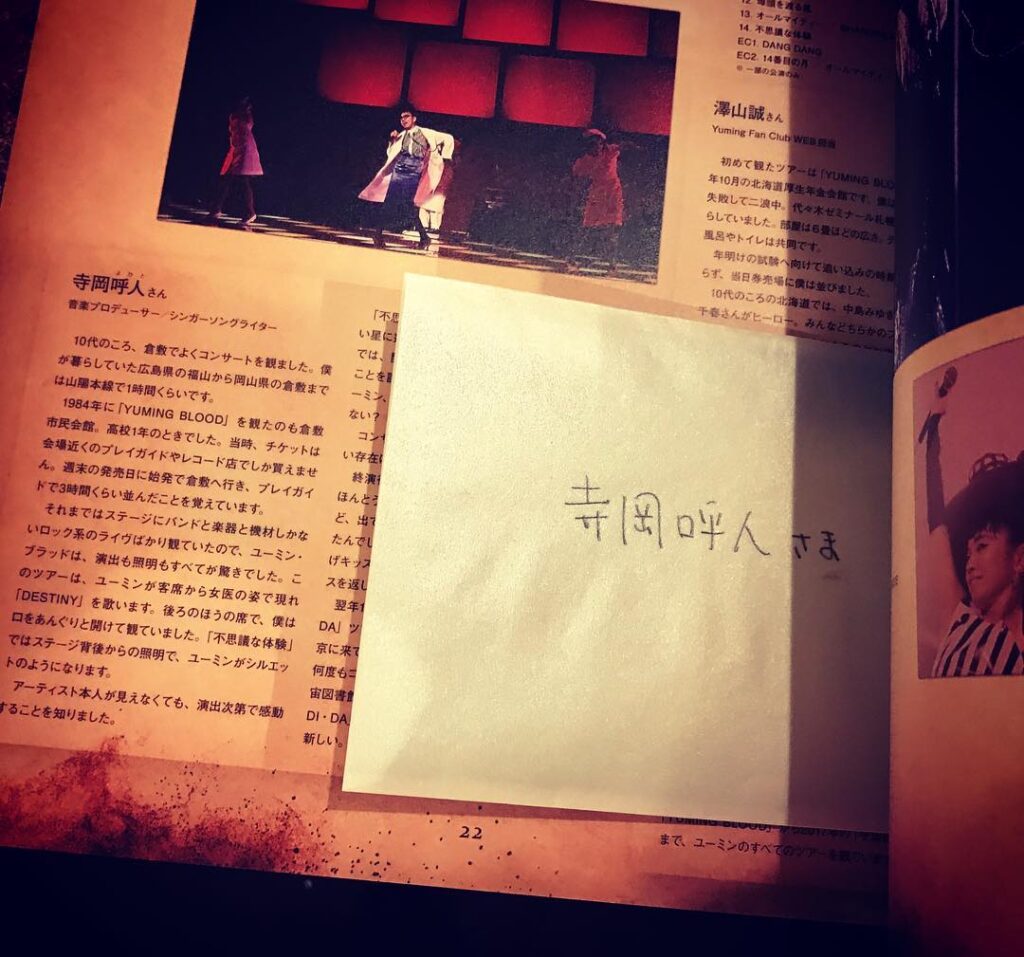 12. 埠頭を渡る風
13. オールマイティー
14. 不思議な体験
EC1. DANG DANG
EC2. 14番目の月
※ 一部の公演のみ
澤山誠さん
Yuming Fan Club WEB担当
初めて観たツアーは「YUMING BLO
年10月の北海道厚生年金会館です。僕は
失敗して二浪中。代々木ゼミナール札幌
らしていました。部屋は6畳ほどの広さ。
風呂やトイレは共同です。
年明けの試験へ向けて追い込みの時期
らず、当日券売場に僕は並びました。
10代のころの北海道では、中島みゆき
千春さんがヒーロー。みんなどちらかの
よひと
寺岡呼人さん
音楽プロデューサー/シンガーソングライター
10代のころ、倉敷でよくコンサートを観ました。僕
が暮らしていた広島県の福山から岡山県の倉敷まで
は山陽本線で1時間くらいです。
1984年に「YUMING BLOOD」を観たのも倉敷
市民会館。高校1年のときでした。当時、チケットは
会場近くのプレイガイドやレコード店でしか買えませ
ん。週末の発売日に始発で倉敷へ行き、プレイガイ
ドで3時間くらい並んだことを覚えています。
それまではステージにバンドと楽器と機材しかな
いロック系のライヴばかり観ていたので、ユーミン・
ブラッドは、演出も照明もすべてが驚きでした。こ
のツアーは、ユーミンが客席から女医の姿で現れ
「DESTINY」を歌います。後ろのほうの席で、僕は
口をあんぐりと開けて観ていました。「不思議な体験」
ではステージ背後からの照明で、ユーミンがシルエッ
トのようになります。
アーティスト本人が見えなくても、演出次第で感動
することを知りました。
「不思
い星に
では、
ことを
ーミン、
ない?
コンセ
い存在
終演後
ほんとう
ど、出て
たんでし
げキッス
スを返し
翌年1
DA」ツ
京に来て
何度もコ
宙図書館
DI・DA
新しい。
寺岡呼人さま
22
「YUMING BLOOD」から
まで、ユーミンのすべてのツアーを観ています